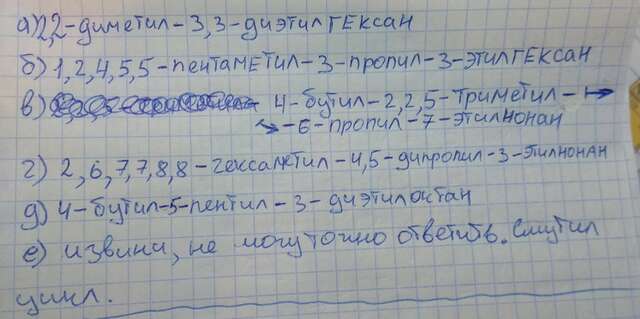 а) 2,2-диметил-3,3-диэтилГЕксан
б) 1,2,4,5,5-пентаметил-3-пропил-3-этилГЕксан
в) 4-бутил-2,2,5-триметил-
-6-пропил-7-этилнонан
г) 2,6,7,7,8,8-гексаметил-4,5-дипропил-3-этилнонан
д) 4-бутил-5-пентил-3-диэтилоктан
е) извини, не могу точно ответить. Смутил
цикл.